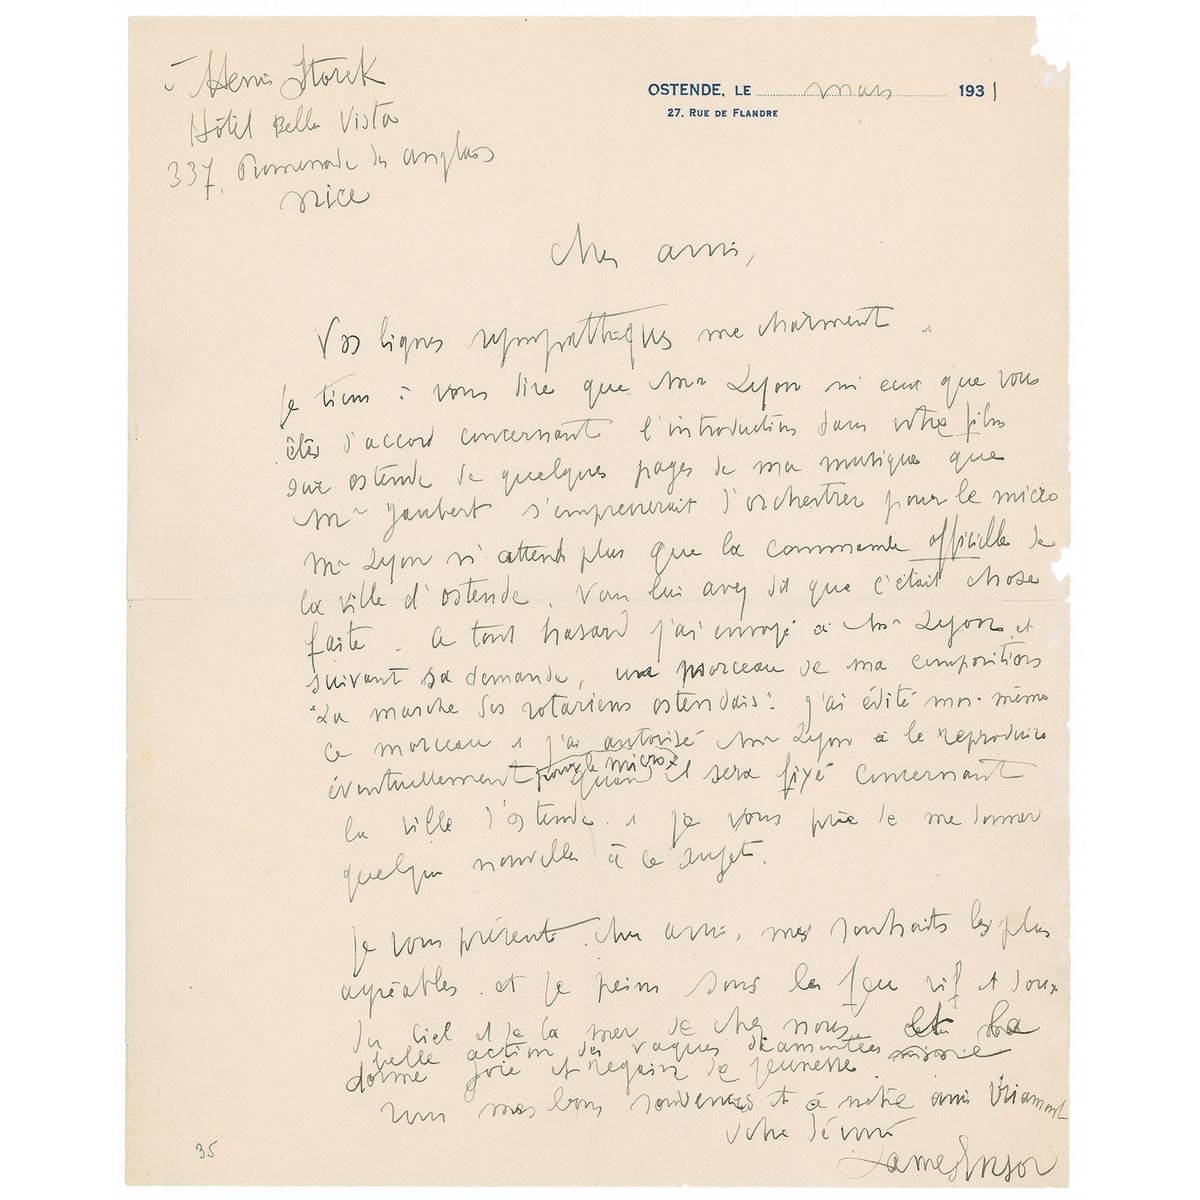 à Henri Storck
Hôtel Bella Vista
337, Promenade des anglais
NICE
OSTENDE, LE mars 1931
27, RUE DE FLANDRE
cher ami,
Vos lignes sympathiques me charment.
Je tiens à vous dire que Mr Lyon m'écrit que vous
êtes d'accord concernant l'introduction dans votre film
sur ostende de quelques pages de ma musique que
Mr Jaubert s'empresserait d'orchestrer pour le micro
Mr Lyon n'attend plus que la commande officielle de
la ville d'ostende. Vous lui avez dit que c'était chose
faite. A tout hasard j'ai envoyé à Mr Lyon, et
suivant sa demande, un morceau de ma composition
"La marche des rotariens ostendais". J'ai édité moi-même
ce morceau et j'ai autorisé Mr Lyon à le reproduire
éventuellement pour le micro quand il sera fixé concernant
la ville d'ostende. et je vous prie de me donner
quelque nouvelle à ce sujet.
Je vous présente, cher ami, mes souhaits les plus
agréables. et je peins sous le feu vif et doux
du ciel et de la mer de chez nous. et la
belle action des vagues diamantées
donne joie et regain de jeunesse.
mes bons souvenirs et à notre ami
Votre dévoué
James Ensor
35